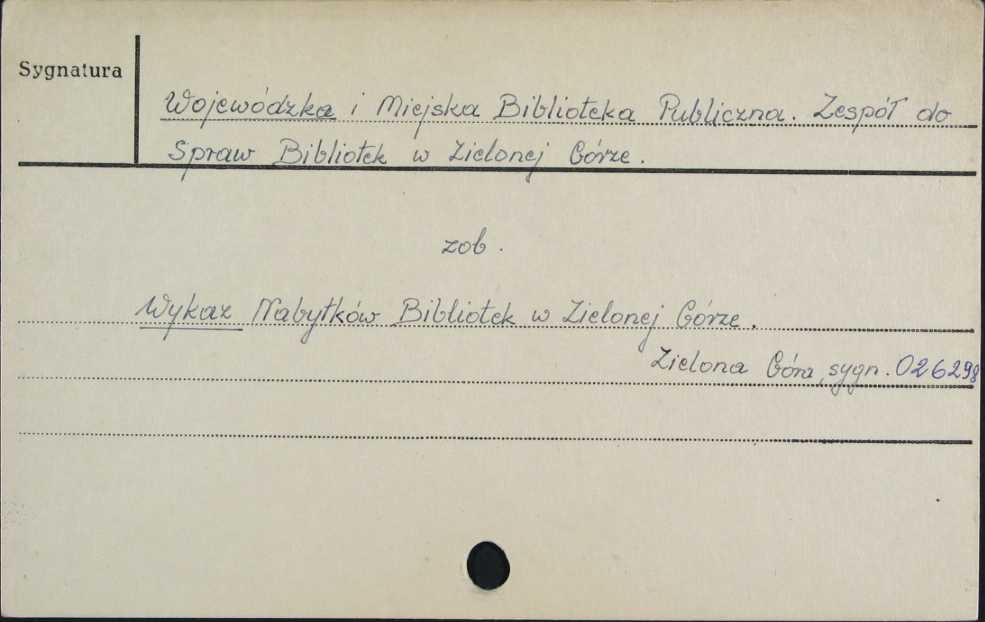 Sygnatura
Wojewódzka i Miejska Biblioteka Publiczna. Zespół do
Spraw Bibliotek w Zielonej Górze.
zob.
Wykaz Nabytków Bibliotek w Zielonej Górze.
Zielona Góra, sygn. 026298